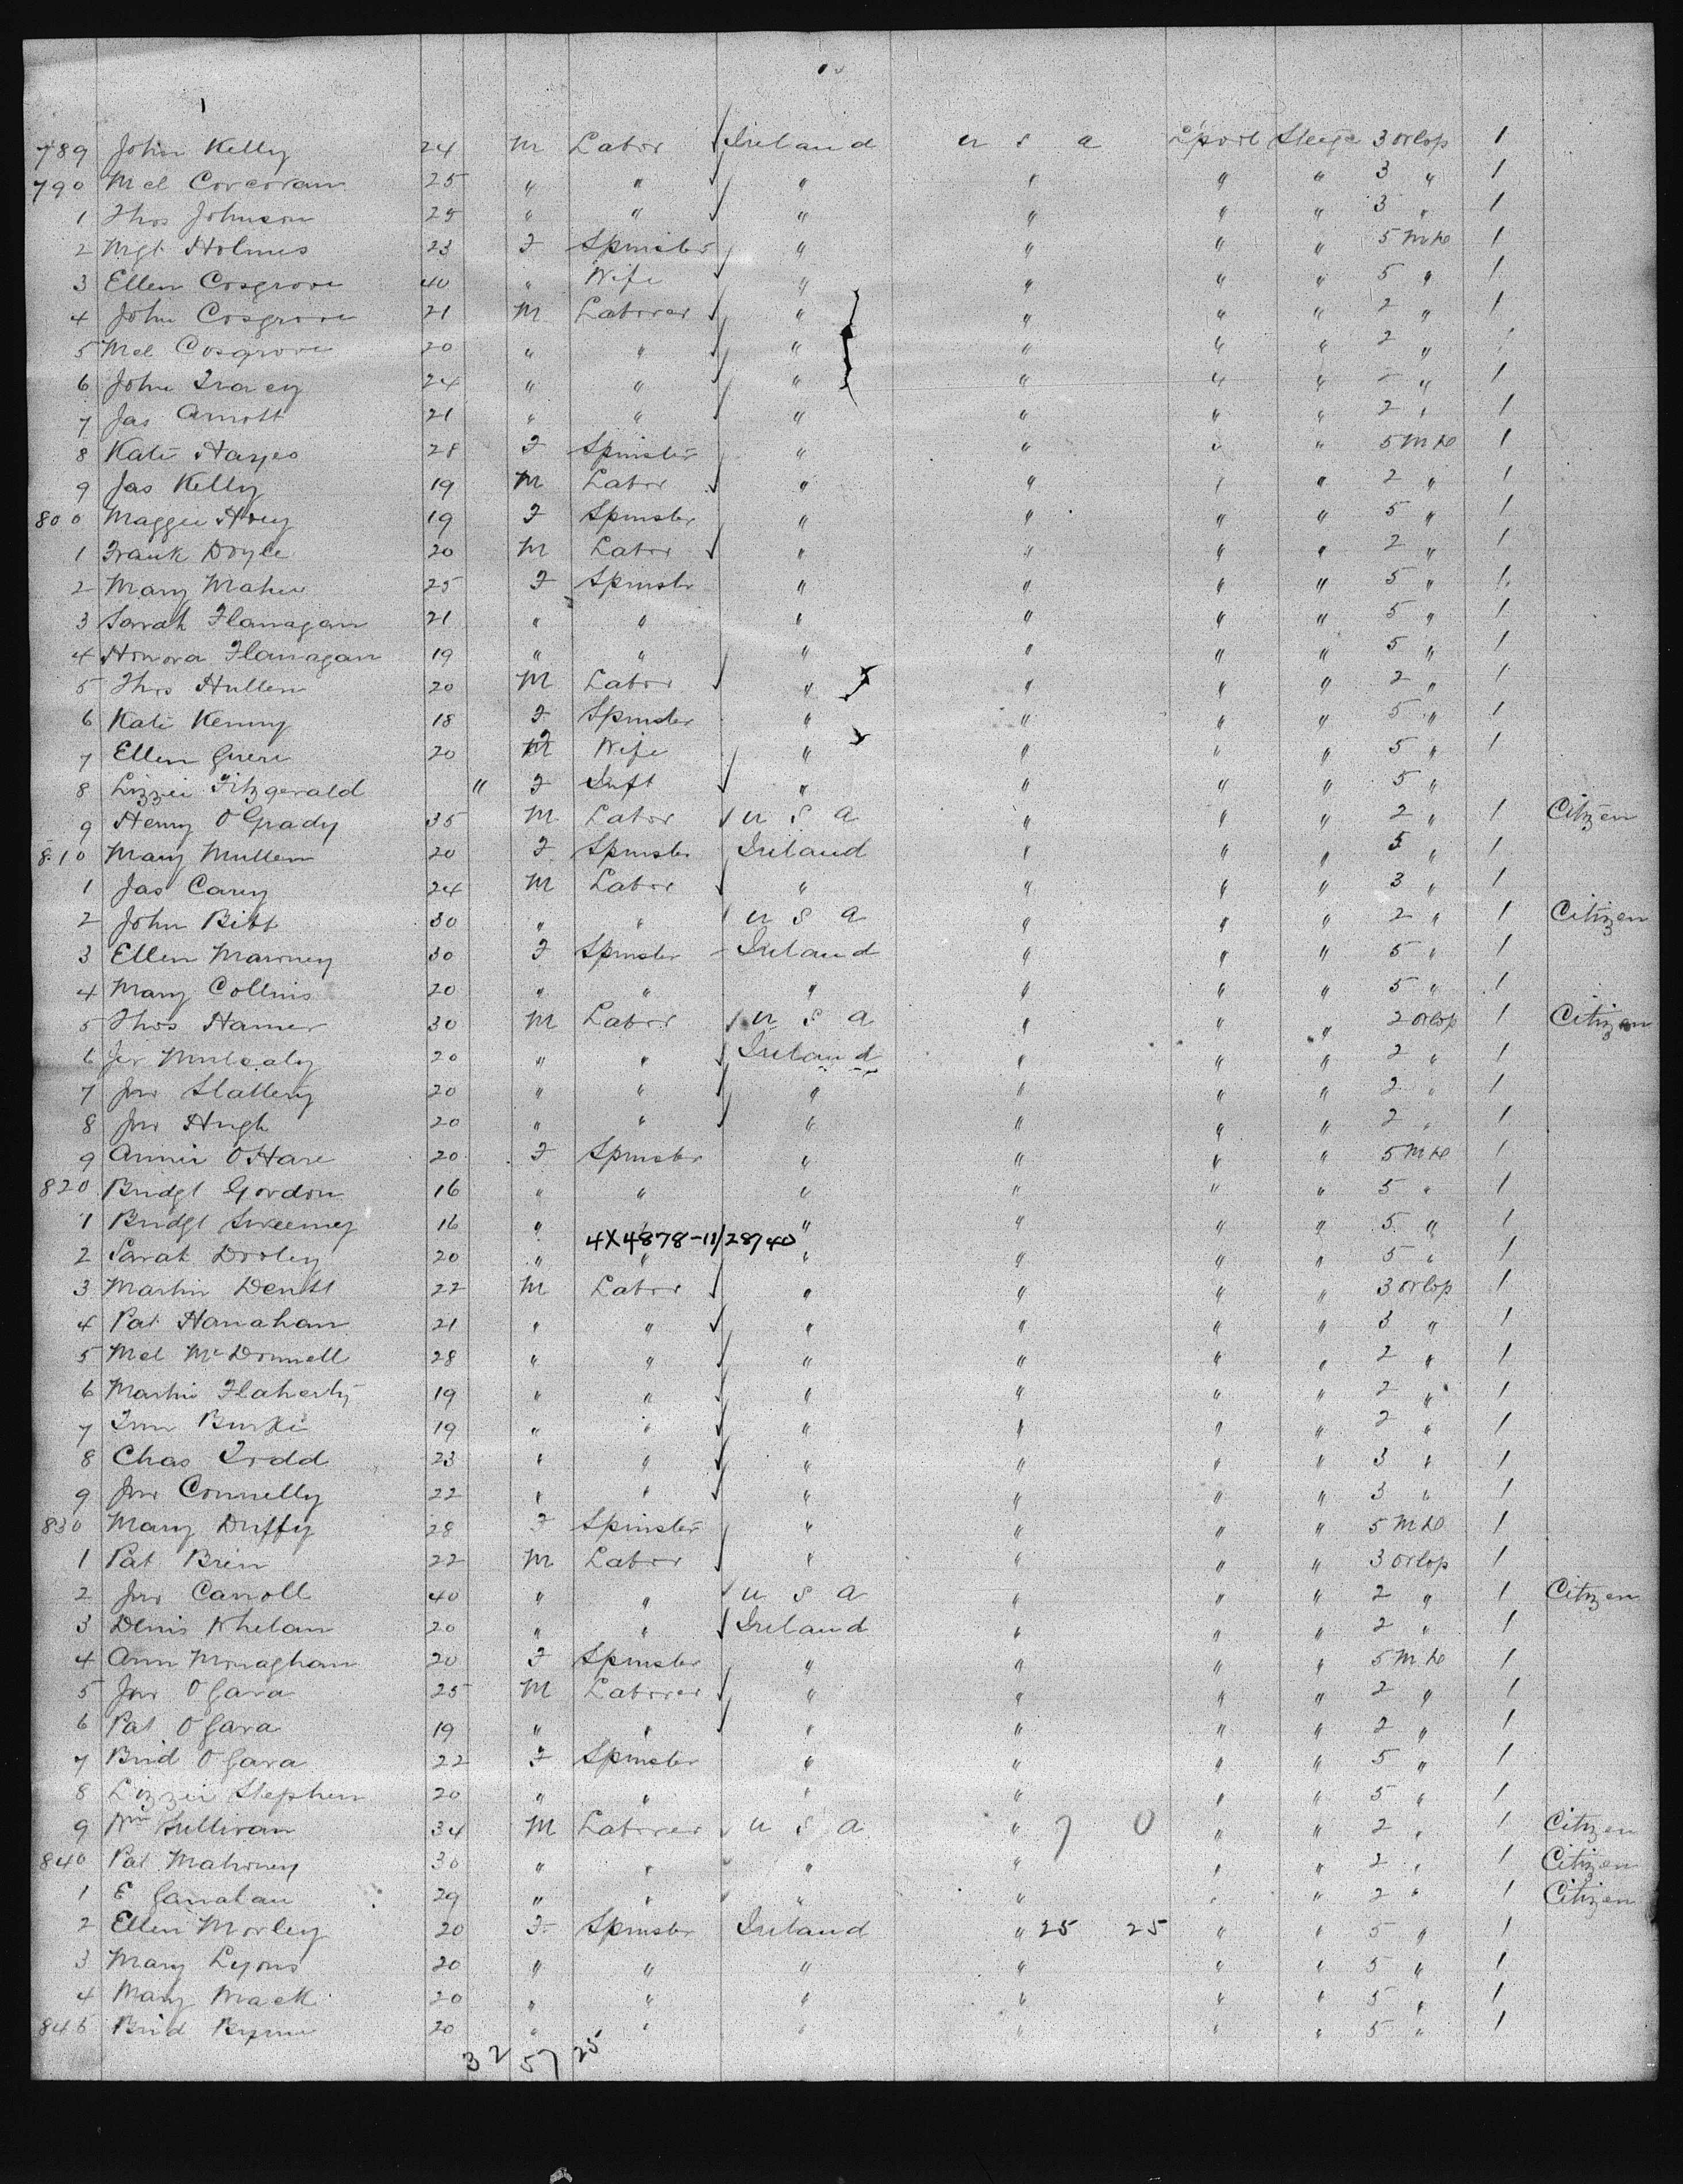 789 John Kelly 24 M Labor Ireland U S A L'pool Steege 3 Orlop 1
790 Mcl Corcoran 25 " " " " " " 3 " 1
1 Thos Johnson 25 " " " " " " 3 " 1
2 Mgt Holmes 23 F Spinster " " " " 5 M de 1
3 Ellen Cosgrove 40 " Wife " " " " 5 " 1
4 John Cosgrove 21 M Laborer " " " " 2 " 1
5 Mcl Cosgrove 20 " " " " " " 2 " 1
6 John Tracey 24 " " " " " " " 1
7 Jas Arnott 21 " " " " " " 2 " 1
8 Kate Hayes 28 F Spinster " " " " 5 M de 1
9 Jas Kelly 19 M Labor " " " " 2 " 1
800 Maggie Hoey 19 F Spinster " " " " 5 " 1
1 Frank Doyle 20 M Labor " " " " 2 " 1
2 Mary Maher 25 F Spinster " " " " 5 " 1
3 Sarah Flanagan 21 " " " " " " 5 " 1
4 Honora Flanagan 19 " " " " " " 5 " 1
5 Thos Hullen 20 M Labor " " " " 2 " 1
6 Kate Kenny 18 F Spinster " " " " 5 " 1
7 Ellen 20 F Wife " " " " 5 " 1
8 Lizzie Fitzgerald " F Inft " " " " 5 "
9 Henry O Grady 35 M Labor U S A " " " 2 " 1 Citizen
810 Mary Mullen 20 F Spinster Ireland " " " 5 " 1
1 Jas Carey 24 M Labor " " " " 3 " 1
2 John Bibb 30 " " U S A " " " 2 " 1 Citizen
3 Ellen Maroney 30 F Spinster Ireland " " " 5 " 1
4 Mary Collins 20 " " " " " " 5 " 1
5 Thos Hamer 30 M Labor U S A " " " 2 Orlop 1 Citizen
6 Jer Mulcaly 20 " " Ireland " " " 2 " 1
7 Jno Slattery 20 " " " " " " 2 " 1
8 Jno Hugh 20 " " " " " " 2 " 1
9 Annie O Hare 20 F Spinster " " " " 5 M de 1
820 Bridgt Gordon 16 " " " " " " 5 " 1
1 Bridgt Sweeney 16 " " " " " 5 " 1
4X4878-11/28/40
2 Sarah Dooley 20 " " " " " " 5 " 1
3 Martin Dentt 22 M Labor " " " " 3 Orlop 1
4 Pat Hanahan 21 " " " " " " 3 " 1
5 Mcl McDonnell 28 " " " " " " 2 " 1
6 Martin Flaherty 19 " " " " " " 2 " 1
7 Tim Burke 19 " " " " " " 2 " 1
8 Chas Todd 23 " " " " " " 3 " 1
9 Jno Connelly 22 " " " " " " 3 " 1
830 Mary Duffy 28 F Spinster " " " " 5 M de 1
1 Pat Brien 22 M Labor " " " " 3 Orlop 1
2 Jno Carroll 40 " " U S A " " " 2 " 1 Citizen
3 Denis Whelan 20 " " Ireland " " " 2 " 1
4 Ann Monaghan 20 F Spinster " " " " 5 M de 1
5 Jno O Gara 25 M Laborer " " " " 2 " 1
6 Pat O Gara 19 " " " " " " 2 " 1
7 Brid O Gara 22 F Spinster " " " " 5 " 1
8 Lizzie Stephen 20 " " " " " " 5 " 1
9 Wm Sullivan 34 M Laborer U S A " 7 0 " " 2 " 1 Citizen
840 Pat Mahoney 30 " " " " " " 2 " 1 Citizen
1 E 29 " " " " " " 2 " 1 Citizen
2 Ellen Morley 20 F Spinster Ireland " 25 25 " " 5 " 1
3 Mary Lyons 20 " " " " " " 5 " 1
4 Mary Mack 20 " " " " " " 5 " 1
845 Brid Byrne 20 " " " " " " 5 " 1
32 57 25